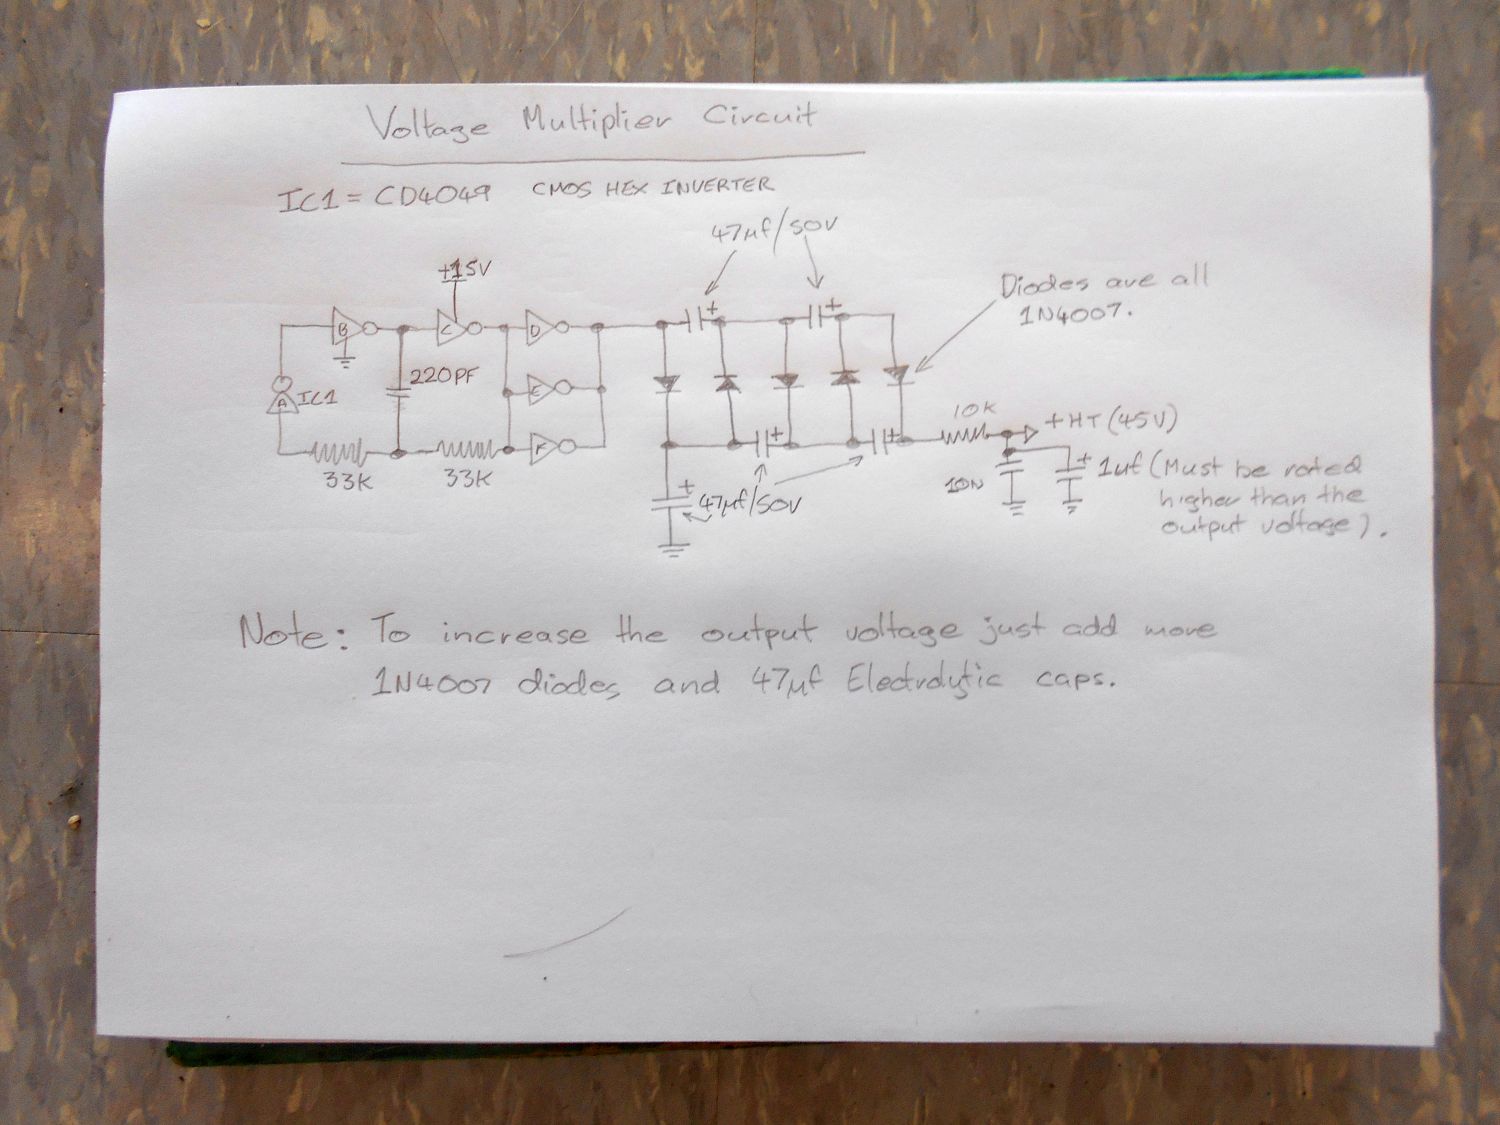 Voltage Multiplier Circuit
IC1 = CD4049 CMOS HEX INVERTER
47µf/50V
+15V
Diodes are all
1N4007.
B
C
D
220PF
A
IC1
E
10K
+HT (45V)
F
33K
33K
+
+
+
+
+
+
47µf/50V
10N
1uf (Must be rated
higher than the
output voltage).
Note: To increase the output voltage just add more
1N4007 diodes and 47µf Electrolytic caps.